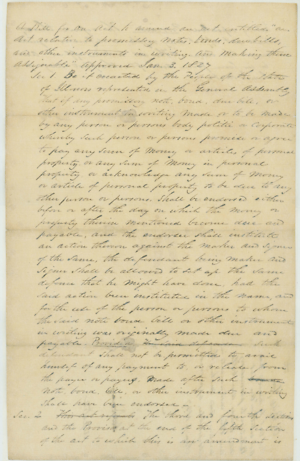 A Bill for An Act to amend an Act entitled "an
Act relative to promissory notes, bonds, due bills,
and other instruments in writing and making them
assignable" approved Jan. 3, 1827
Sec. 1 Be it enacted by the People of the State
of Illinois represented in the General Assembly
That if any promissory note, bond, due bill, or
other instrument in writing made or to be made
by any person or persons body politic or corporate
whereby such person or persons promise or agree
to pay any sum of Money or articles of personal
property or any sum of Money in personal
property or acknowledge any sum of Money
or article of personal property to be due to any
other person or persons shall be endorsed either
before or after the day on which the money or
property therein mentioned become due and
payable, and the endorsee shall institute
an action thereon against the maker and signer
of the same, the defendant being maker and
signer shall be allowed to set up the same
defence that he might have done had the
said action been instituted in the name and
for the use of the person or persons to whom
the said note bond bill or other instrument
in writing was originally made due and
payable Provided such
defendant shall not be permitted to avail
himself of any payment to or release from
the payee or payees made after such
note bond bill or other instrument in writing
shall have been endorsed
Sec. 2 The third and the sections
and the Proviso at the end of the fifth Section
of the act to which this is an amendment is